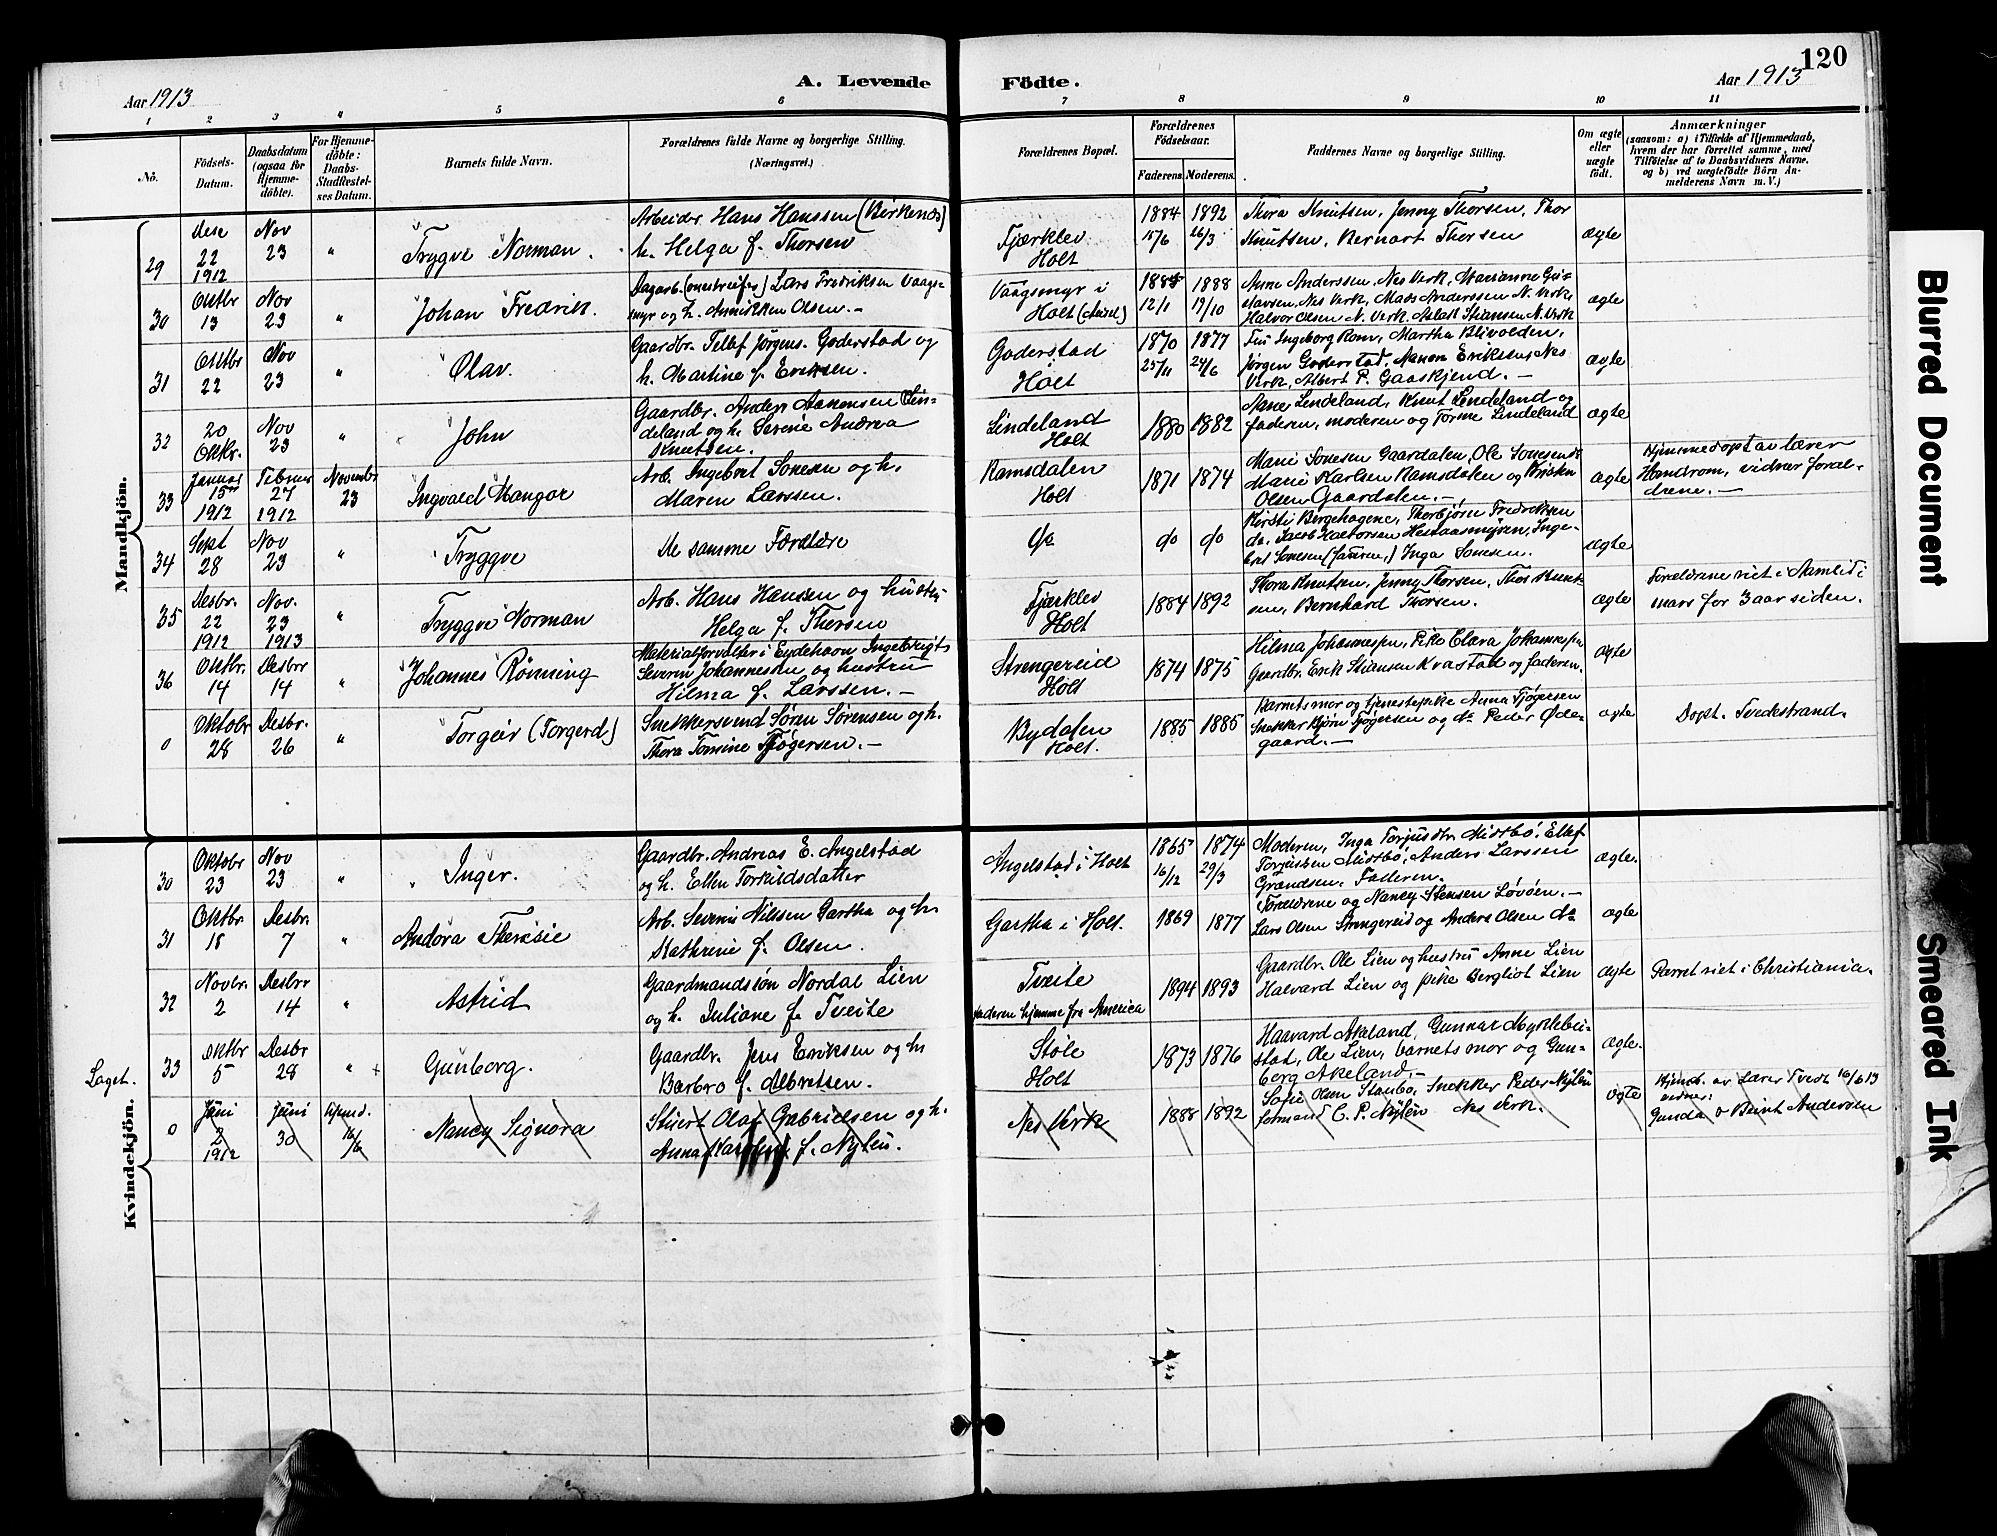 120
Aar 1913
A. Levende
Födte.
Aar 1913
1 2 3 4 5 6 7 8 9 10 11
No.
Födsels-
Datum.
Daabsdatum
(ogsaa for
Hjemme-
döbte).
For Hjemme-
döbte:
Daabs-
Stadfestel-
ses Datum.
Barnets fulde Navn.
Forældrenes fulde Navne og borgerlige Stilling.
(Næringsvei.)
Forældrenes Bopæl.
Forældrenes
Födselsaar.
Faderens. Moderens.
Faddernes Navne og borgerlige Stilling.
Om ægte
eller
uægte
födt.
Anmærkninger
(saasom: a) i Tilfælde af Hjemmedaab,
hvem der har forrettet samme, med
Tilföielse af to Daabsvidners Navne,
og b) ved uægtefödte Börn An-
melderens Navn m. V.)
Mandkjön.
29
Dese
22
1912
Nov
23
"
Trygve Norman.
Arbeider Hans Hanssen (Birkenes)
h. Helga f. Thorsen
Fjærklev
Holt
1884
15/6
1892
26/3
Thora Knutsen, Jenny Thorsen, Thor
Knutsen, Bernart Thorsen
ægte
30
Oktbr
13
Nov
23
"
Johan Fredrik.
Lars Fredriksen Vaags-
myr og h. Annikken Olsen.-
Vaagsmyr i
Holt
12/1
1888
19/10
Anne Anderssen, Nes Verk, Marianne Gu-
stavsen, Nes Verk, Mads Anderssen N. Verk,
Halvor Olsen N. Verk, Aslak Stiansen N. Verk
ægte
31
Oktbr
22
Nov
23
"
Olav.
Gaardbr. Tellef Jørgens. Goderstad og
h. Martine f. Eriksen.
Goderstad
Holt
1870
25/11
1877
24/6
Fru Ingeborg Rom, Martha Blivolden,
Jørgen Goderstad, Eriksen Nes
Verk, Albert P. Gaaskjend.-
ægte
32
20
Oktbr.
Nov
23
"
John
Gaardbr. Anders Aanensen Lin-
deland og h. Serine Andrea
Knutsen.
Lindeland
Holt
1880
1882
Aane Lindeland, Knut Lindeland og
faderen, moderen og Torine Lindeland
ægte
33
Januar
15
1912
Februar
27
1912
Novembr
23
Ingvald Mangor
Arb. Ingebret Sonesen og h.
Maren Larssen.
Ramsdalen
Holt
1871
1874
Marie Sonesen Gaardalen, Ole Sonesen
Marie Karlsen Ramsdalen og Kristen
Olsen Gaardalen.-
ægte
Hjemmedøpt av lærer
Handrom, vidner foræl-
drene.-
34
Sept
28
Nov
23
"
Tryggve
De samme Forældre
do
do
do
Kirsti Bergehagene, Thorbjørn Fredriksen
do. Jacob Halvorsen Hestaasmyren, Inge-
bret Sonesen (faderen,) Inga Sonesen.
ægte
35
Desbr.
22
1912
Nov.
23
1913
"
Tryggve Norman
Arb. Hans Hansen og hustru
Helga f. Thorsen
Fjærklev
Holt
1884
1892
Thora Knutsen, Jenny Thorsen, Thor Knut-
sen, Bernhard Thorsen.
ægte
Forældrene viet i Aamli i
mars for 3 aar siden.
36
Oktbr.
14
Desbr
14
"
Johannes Rønning
Materialforvalter i Eydehavn Ingebrigt
Severin Johannessen og hustru
Hilma f. Larssen.-
Strengereid
Holt
1874
1875
Hilma Johannessen, Pike Clara Johannessen
Gaardbr. Erik Stiansen Kvastad og faderen.
ægte
0
Oktobr
28
Desbr.
26
"
Torgeir (Torgerd)
Snekkersvend Søren Sørensen og h.
Thora Tomine Tjøgersen.-
Bydalen
Holt.
1885
1885
Barnets mor og tjenestepike Anna Tjøgersen
Snekker Bjørn Tjøgersen og do Peder Øde-
gaard.-
ægte
Døpt. Tvedestrand.
Kvindekjön.
30
Oktobr
23
Nov
23
"
Inger.
Gaardbr. Andreas E. Angelstad
og h. Ellen Torkildsdatter
Angelstad i Holt
1865
16/12
1874
29/3
Moderen, Inga Torjusdtr Midtbø, Ellef
Torjussen Midtbø, Anders Larssen
Grændsen. Faderen.
ægte.
31
Oktbr
18
Desbr.
7
"
Andora Theresie
Arb. Severin Nilssen Gartha og h.
Kathrine f. Olsen.
Gartha i Holt.
1869
1877
Forældrene og Nancy Stensen Løvøen.-
Lars Olsen Strengereid og Anders Olsen do
ægte
32
Novbr.
2
Desbr
14
"
Astrid
Gaardmandssøn Nordal Lien
og h. Juliane f. Tveite
Tveite
faderen hjemme fra America
1894
1893
Gaardbr. Ole Lien og hustru Anne Lien
Halvard Lien og pike Bergliot Lien
ægte
Parret viet i Christiania.
Laget.
33
Oktbr
5
Desbr
28
" +
Gunborg.
Gaardbr. Jens Eriksen og h.
Barbro f. Albretsen.
Støle
Holt
1873
1876
Haavard Akeland, Gunnar Myrlebu-
stad, Ole Lien, barnets mor og Gun-
berg Akeland.-
ægte.
0
Juni
2
1912
Juni
30
Hjemd.
16/6
Nancy Signora
Stuert Olaf Gabrielsen og h.
Anna f. Nylén.
Nes Verk
1888
1892
Sofie Olsen Staubo, Snekker Peder Nylén
formand C. P. Nylén Nes Verk.
ægte
Hjemd. av Lærer Tvedt 16/6 13
vidner:
Gunda & Berint Andersen
Blurred Document
Smeared Ink